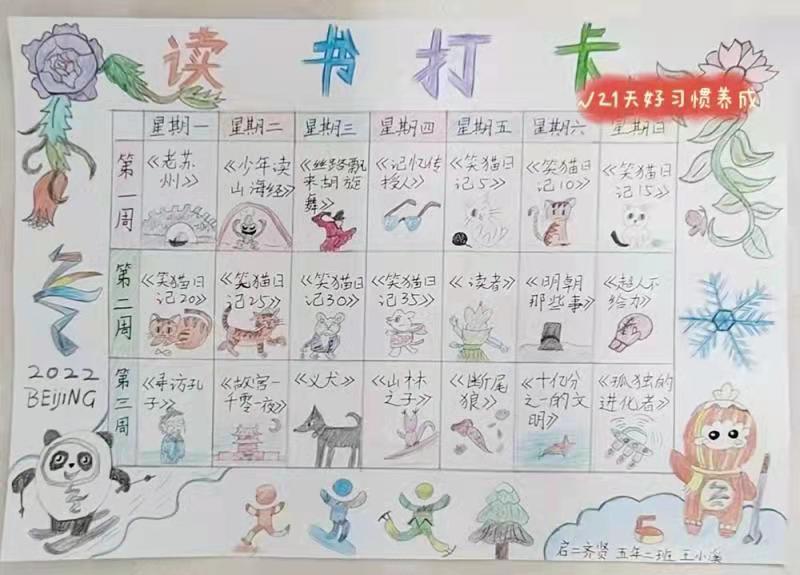 读书打卡
√21天好习惯养成
星期一 星期二 星期三 星期四 星期五 星期六 星期日
第一周
《老苏
州》
《少年读
山海经》
《丝路飘
来胡旋
舞》
《记忆传
授人》
《笑猫日
记5》
《笑猫日
记10》
《笑猫日
记15》
第二周
《笑猫日
记20》
《笑猫日
记25》
《笑猫日
记30》
《笑猫日
记35》
《读者》
《明朝
那些事》
《超人不
给力》
第三周
《寻访孔
子》
《故宫一
千零一夜》
《义犬》
《山林
之子》
《断尾
狼》
《十亿分
之一的文
明》
《孤独的
进化者》
2022
BEIJING
启二齐贤 五年二班 王小溪